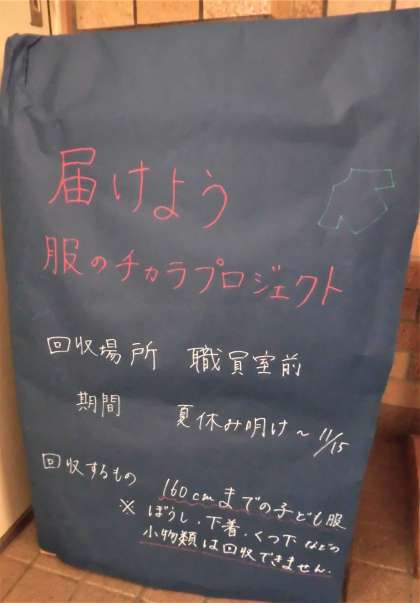 届けよう
服のチカラプロジェクト
回収場所 職員室前
期間 夏休み明け～11/15
回収するもの 160cmまでの子ども服
※ ぼうし、下着、くつ下などの
小物類は回収できません.